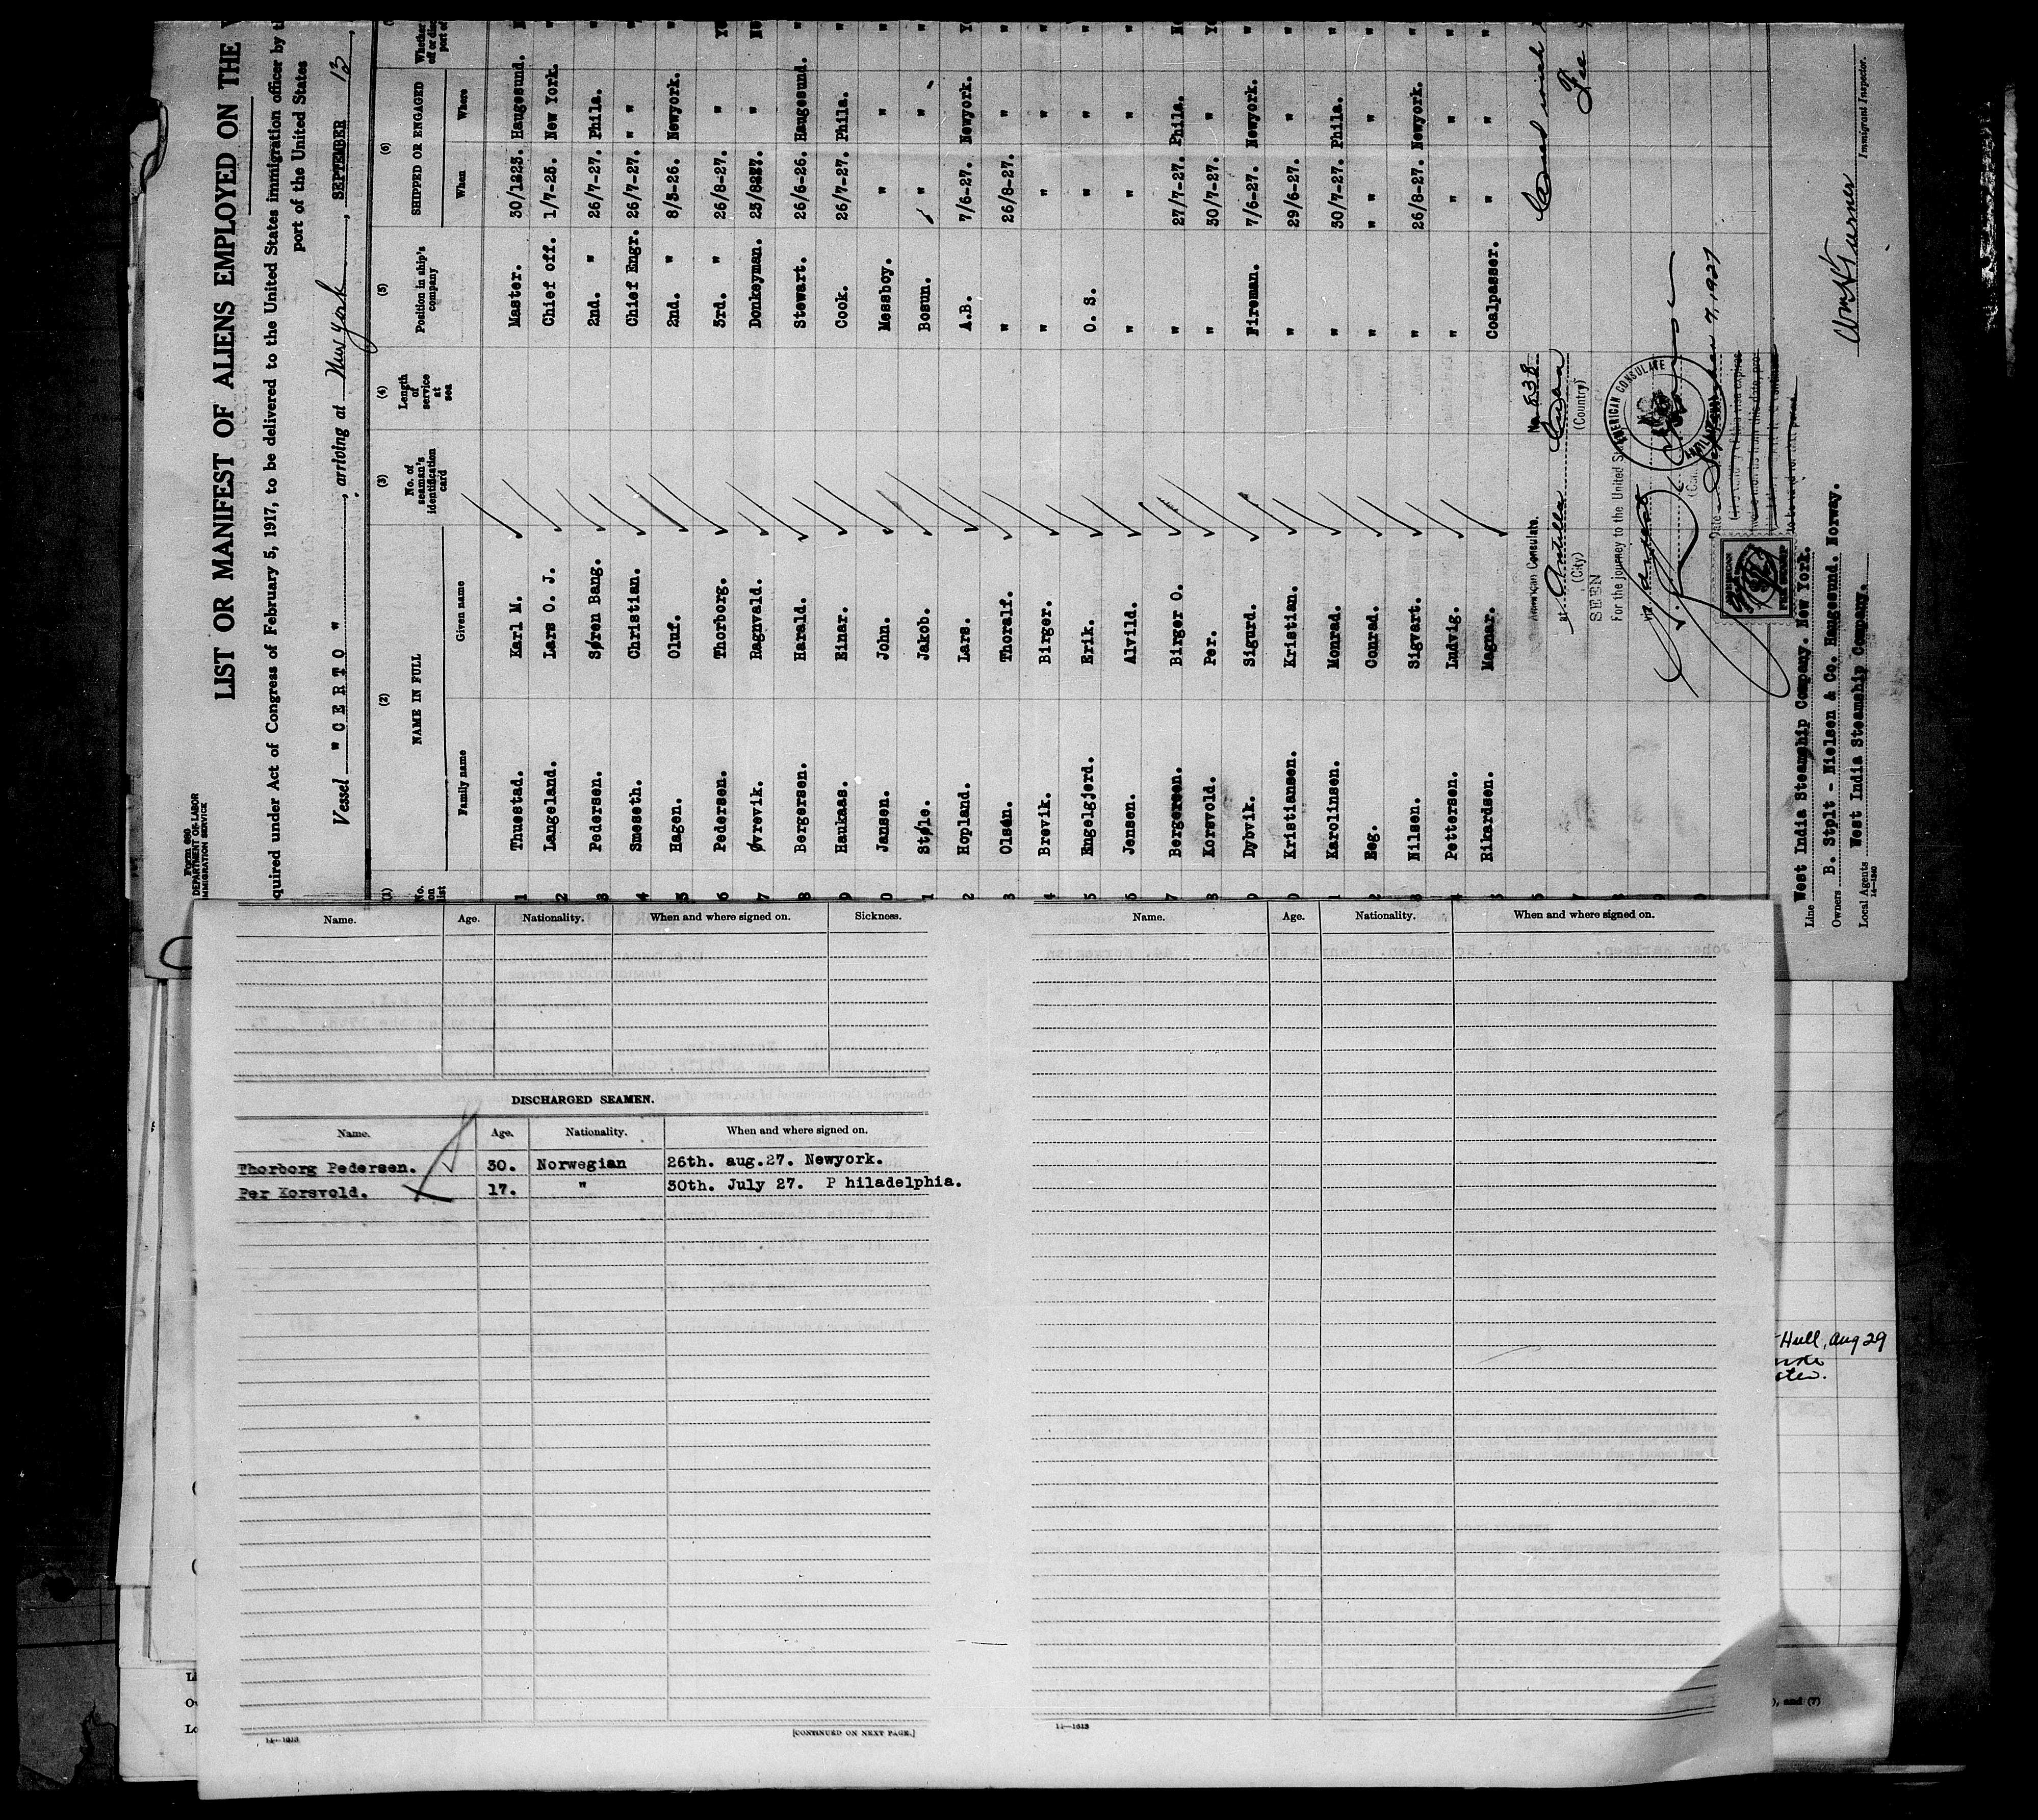 Form 680
DEPARTMENT OF LABOR
IMMIGRATION SERVICE
LIST OR MANIFEST OF ALIENS EMPLOYED ON THE
quired under Act of Congress of February 5, 1917, to be delivered to the United States immigration officer by
port of the United States
Vessel "CERTO", arriving at New York, SEPTEMBER 13,
(1) (2) (3) (4) (5) (6)
No. on list NAME IN FULL No. of seaman's identification card Length of service at sea Position in ship's company SHIPPED OR ENGAGED
Family name Given name When Where
1 Thuestad. Karl M. Master. 30/1223. Haugesund.
2 Langeland. Lars O. J. Chief off. 1/7-25. New York.
3 Pedersen. Søren Bang. 2nd. " 26/7-27. Phila.
4 Smeseth. Christian. Chief Engr. 26/7-27. " "
5 Hagen. Oluf. 2nd. " 8/3-26. Newyork.
6 Pedersen. Thorborg. 3rd. " 26/8-27. "
7 Øvrevik. Ragnvald. Donkeyman. "
8 Bergersen. Harald. Stewart. 26/6-26. Haugesund.
9 Haukaas. Einar. Cook. 26/7-27. Phila.
0 Jansen. John. Messboy. " "
1 Støle. Jakob. Bosun. " "
2 Hopland. Lars. A.B. 7/6-27. Newyork.
3 Olsen. Thoralf. " 26/8-27. "
4 Brevik. Birger. " " "
5 Engelgjerd. Erik. O. S. " "
6 Jensen. Alvild. " " "
7 Bergersen. Birger O. " 27/7-27. Phila.
8 Korsvold. Per. " 30/7-27. "
9 Dybvik. Sigurd. Fireman. 7/6-27. Newyork.
0 Kristiansen. Kristian. " 29/6-27. "
1 Karolinsen. Monrad. " 30/7-27. Phila.
2 Eeg. Conrad. " " " "
3 Nilsen. Sigvart. " 26/8-27. Newyork.
4 Pettersen. Ludvig. " " "
5 Rikardsen. Magnar. Coalpasser. " "
No. 838
American Consulate.
at Antilla Cuba
(City) (Country)
SEEN
For the journey to the United States
AMERICAN CONSULATE
Date September 7, 1927
Fee
Line West India Steamship Company. New York.
Owners B. Stplt - Nielsen & Co. Haugesund. Norway.
Local Agents West India Steamship Company.
14-1240
Wm H Turner
Immigrant Inspector.
Name. Age. Nationality. When and where signed on. Sickness.
DISCHARGED SEAMEN.
Name. Age. Nationality. When and where signed on.
Thorborg Pedersen. 30. Norwegian 26th. aug.27. Newyork.
Per Korsvold. 17. " 30th. July 27. P hiladelphia.
14-1613
[CONTINUED ON NEXT PAGE.]
Name. Age. Nationality. When and where signed on.
11-1613
Hull, Aug 29
), and (7)